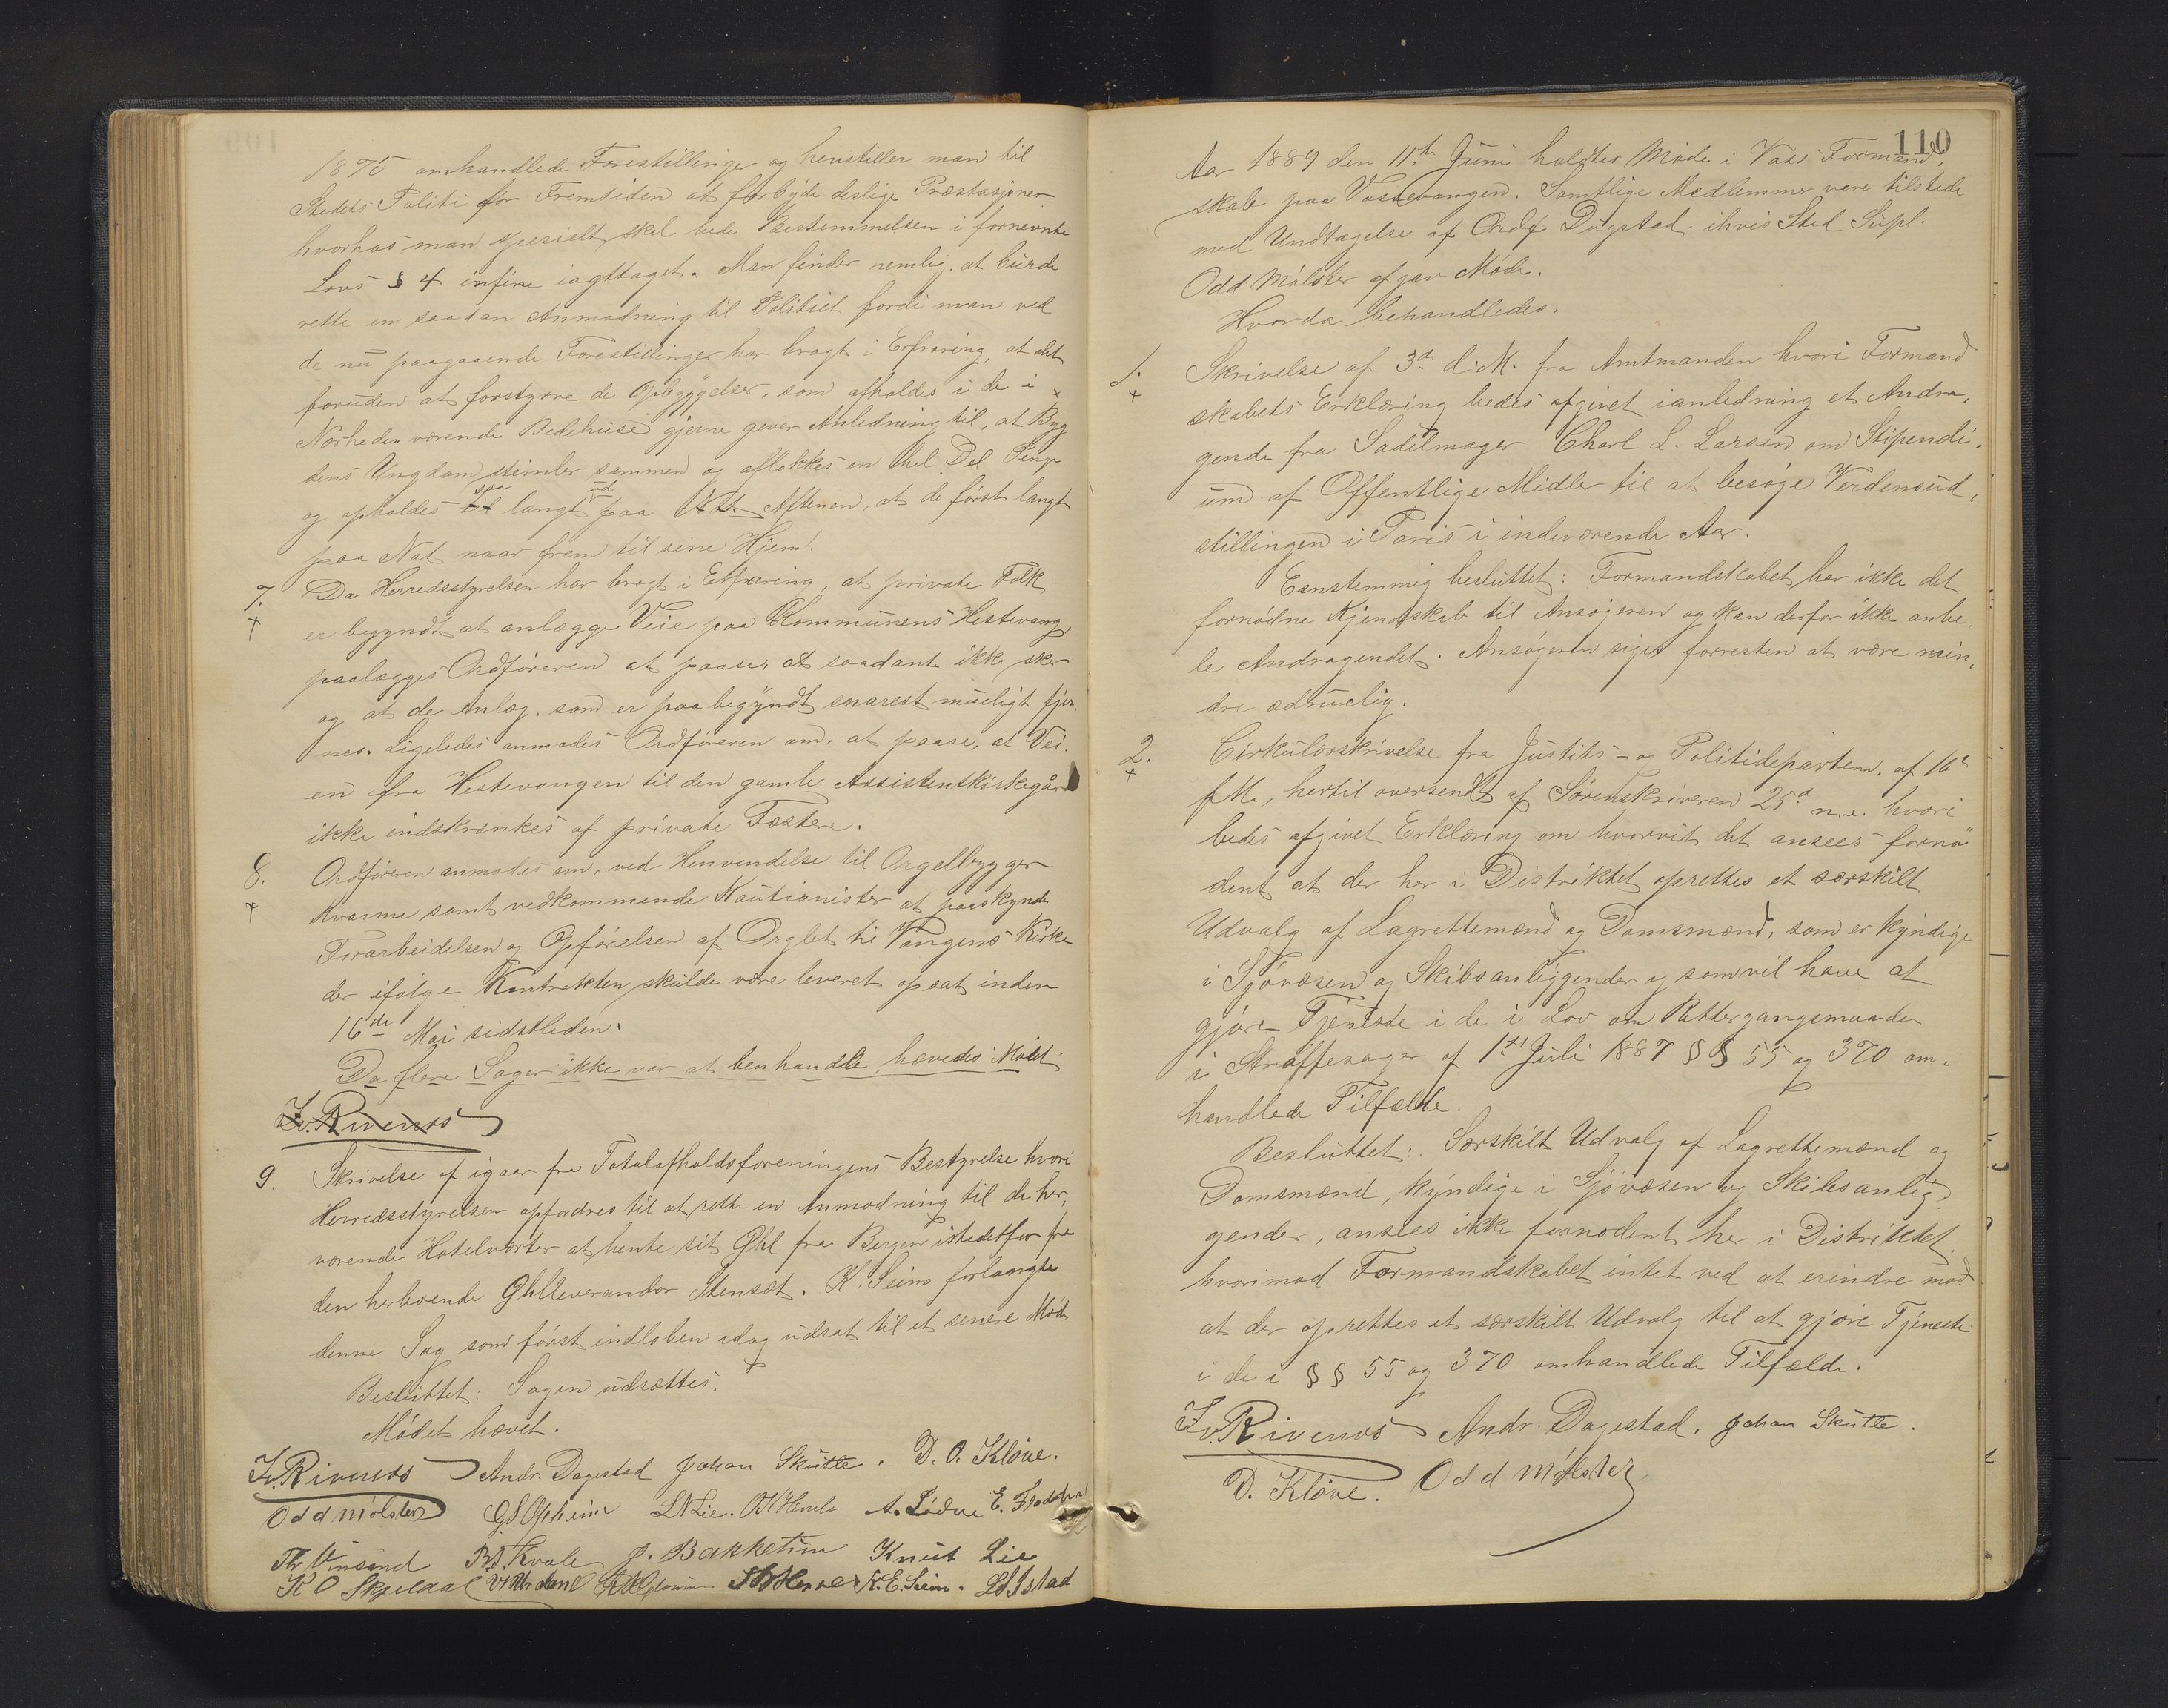 1875 omhandlede Forestillinger og henstiller man til
Stedets Politi for Fremtiden at forbyde deslige Præstasjoner
hvorhos man spesielt skal bede Bestemmelsen i fornevnte
Lovs § 4 infine iagttaget. Man finder nemlig at burde
rette en saadan Anmodning til Politiet fordi man ved
de nu paagaaende Forestillinger har bragt i Erfaring, at det
foruden at forstyrre de Opbyggelser, som afholdes i de i
Nærheden værende Bedehuse gjerne gever Anledning til, at Byg
dens Ungdom stimler sammen og aflokkes en hel Del Penge
og opholdes saa langt ud paa Aftenen, at de først langt
paa Nat naar frem til sine Hjem.
7. Da Herredsstyrelsen har bragt i Erfaring, at private Folk
er begyndt at anlægge Veie paa Kommunens Hestevang,
paalægges Ordføreren at paase, at saadant ikke sker
og at de Anlæg, som er paabegyndt snarest muligt fjer
nes. Ligeledes anmodes Ordføreren om, at paase, at Vei
en fra Hestevangen til den gamle Assistentkirkegår
ikke indskrænkes af private Fæstere.
8. Ordføreren anmodes om, ved Henvendelse til Orgelbygger
Kvarme samt vedkommende Kautionister at paaskynde
Forarbeidelsen og Opførelsen af Orglet til Vangens Kirke
der ifølge Kontrakten skulde være leveret opsat inden
16de Mai sidstleden.
Da flere Sager ikke var at benhandle hævedes Mødet
Iv. Rivenes
9. Skrivelse af igaar fra Totalafholdsforeningens Bestyrelse hvori
Herredsstyrelsen opfordres til at rette en Anmodning til de her,
værende Hotelverter at hente sit Øhl fra Bergen istedetfor fra
den herboende Øhlleverandør Stenset. K. Seim forlangte
denne Sag som først indløben idag udsat til et senere Møde
Besluttet: Sagen udsættes.
Mødet hævet.
Iv. Rivenes Andr. Dagestad Johan Skutle. D. O. Kløve.
Odd Mølster G. S. Opheim L N Lie. A. Lødve E.
Vinsand B. T. Kvale J. Bakketun Knut Lie
K O Skjeldal K. E. Seim. Istad
110
Aar 1889 den 11te Juni holdtes Møde i Voss Formand,
skab paa Vossevangen. Samtlige Medlemmer vare tilstede
med Undtagelse af Ordf Dugstad ihvis Sted Supl.
Odd Mølster afgav Møde.
Hvorda behandledes.
1. Skrivelse af 3de d. M. fra Amtmanden hvori Formand
skabets Erklæring bedes afgivet ianledning et Andra,
gende fra Sadelmager Charl L. Larsen om Stipendi,
um af Offentlige Midler til at besøge Verdensud,
stillingen i Paris i indeværende Aar.
Eenstemmig besluttet: Formandskabet har ikke det
fornødne Kjendskab til Ansøgeren og kan derfor ikke anbe,
le Andragendet. Ansøgeren siges forresten at være min,
dre ædruelig.
2. Cirkulærskrivelse fra Justits- og Politidepartem. af 16de
f M., hertil oversendt af Sorenskriveren 25de n. e. hvori
bedes afgivet Erklæring om hvorvit det ansees fornø
dent at der her i Distriktet oprettes et særskilt
Udvalg af Lagrettemænd og Domsmænd, som er kyndige
i Sjøvæsen og Skibsanliggender og som vil have at
gjøre Tjeneste i de i Lov om Rettergangsmaaden
i Straffesager af 1ste Juli 1887 § § 55 og 370 om,
handlede Tilfælde.
Besluttet: Særskilt Udvalg af Lagrettemænd og
Domsmænd, kyndige i Sjøvæsen og Skibsanlig
gender, ansees ikke fornødent her i Distriktet.
hvorimod Formandskabet intet ved at erindre mod
at der oprettes et særskilt Udvalg til at gjøre Tjeneste
i de i § § 55 og 370 omhandlede Tilfælde.
Iv. Rivenes Andr. Dagestad. Johan Skutle.
D. Kløve. Odd Mølster